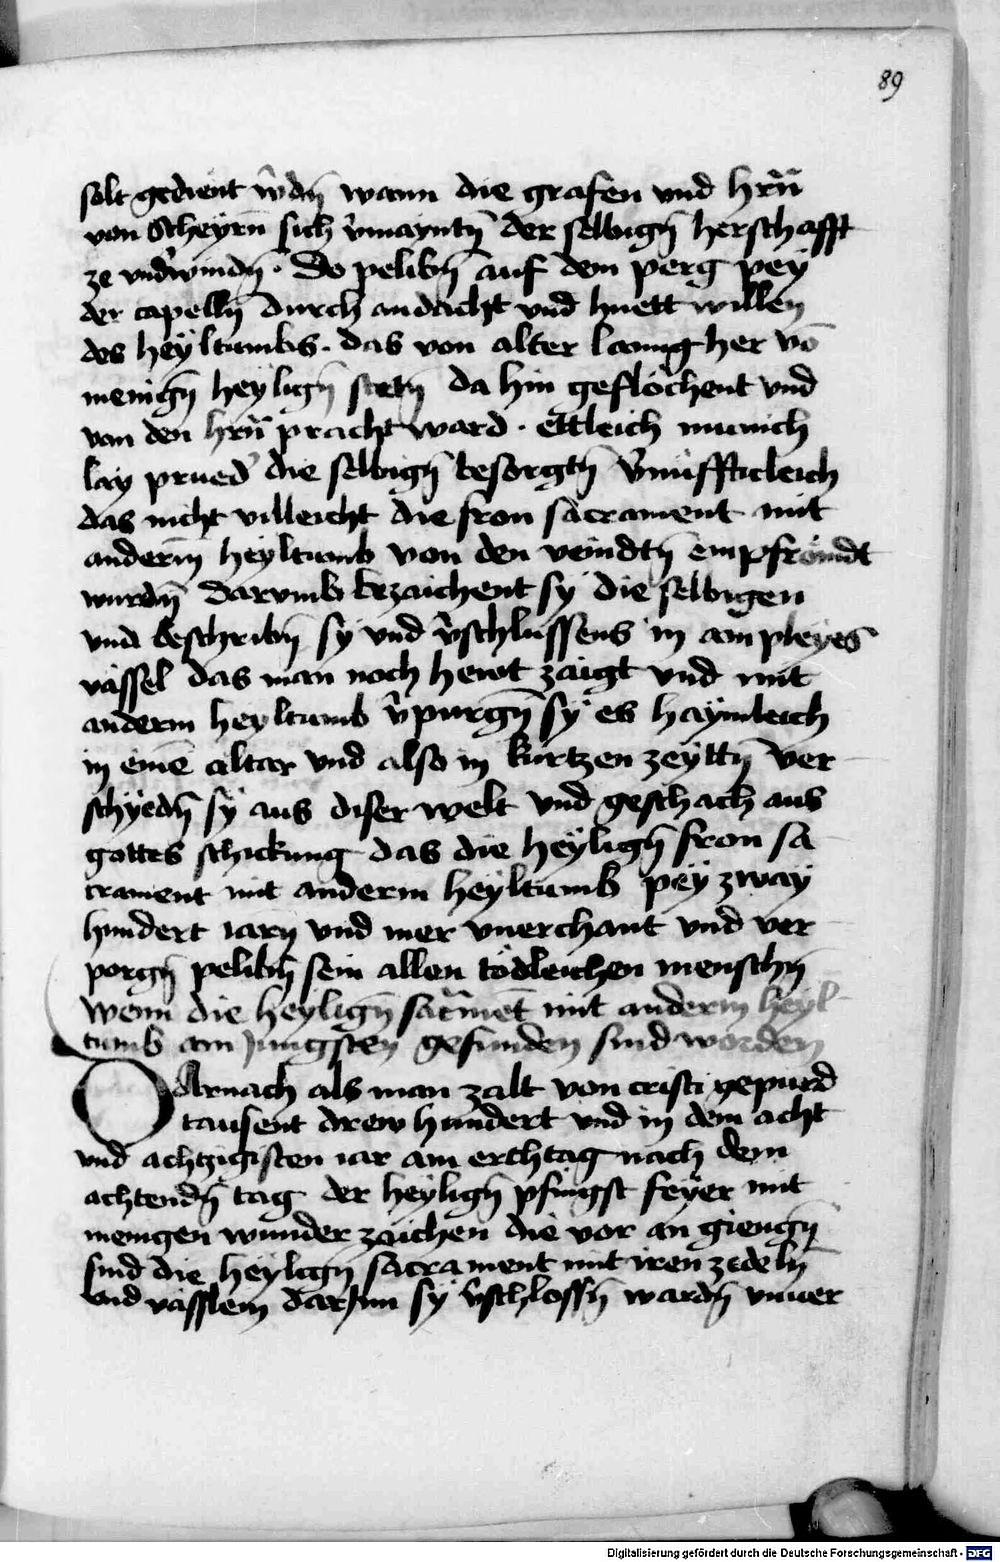 89
solt gedient w̄dn̄ wann die grafen und hr̄n̄
von Scheyrn̄ sich v̄mayntn̄ der selbign̄ herschafft
ze und̄windn̄. Do pelibn̄ auf dem perg pey
der capelln̄ durch andacht vnd huett willen
des heyltumbs. das von alter lanng her vō
menign̄ heyligen̄ stetn̄ da hin geflöchent vnd
von den hr̄n̄ pracht ward. ettleich munich
lay prued̄ die selbign̄ besorgtn̄ v̄nuffticleich
das nicht villeicht die fron sacrament mit
anderm̄ heyltumb von den veindtn̄ empfrömdt
wurdn̄ darumb bezaichent sy die selbigen
vnd beschribn̄ sy vnd v̄schlussens in ain pleyes
vässel das man noch hewt zaigt vnd mit
anderm heyltumb v̄purgn̄ sy es haymleich
in einē altar vnd also in kurtzen zeyttn̄ ver
schyedn̄ sy aus diser welt vnd geschach aus
gottes schickung das die heylign̄ fron sa
crament mit anderm heyltumb pey zway
hundert iarn vnd mer vnerchant vnd ver
porgn̄ pelibn̄ sein allen tödleichen menschn̄
wenn die heylign̄ sacr̄mēt mit anderm heyl
tumb am Jungsten gefunden sind worden
Darnach als man zalt von cristi gepurd
tausent drew hundert vnd in dem acht
vnd achzigisten iar am erchtag nach dem
achtendn̄ tag der heylign̄ pfingst feyer mit
menigen wunder zaichen die vor an giengn̄
sind die heylign̄ sacrament mit iren zedeln̄
vnd vässlein darJnn sy v̄schlossn̄ wardn̄ vnuer
Digitalisierung gefördert durch die Deutsche Forschungsgemeinschaft - DFG